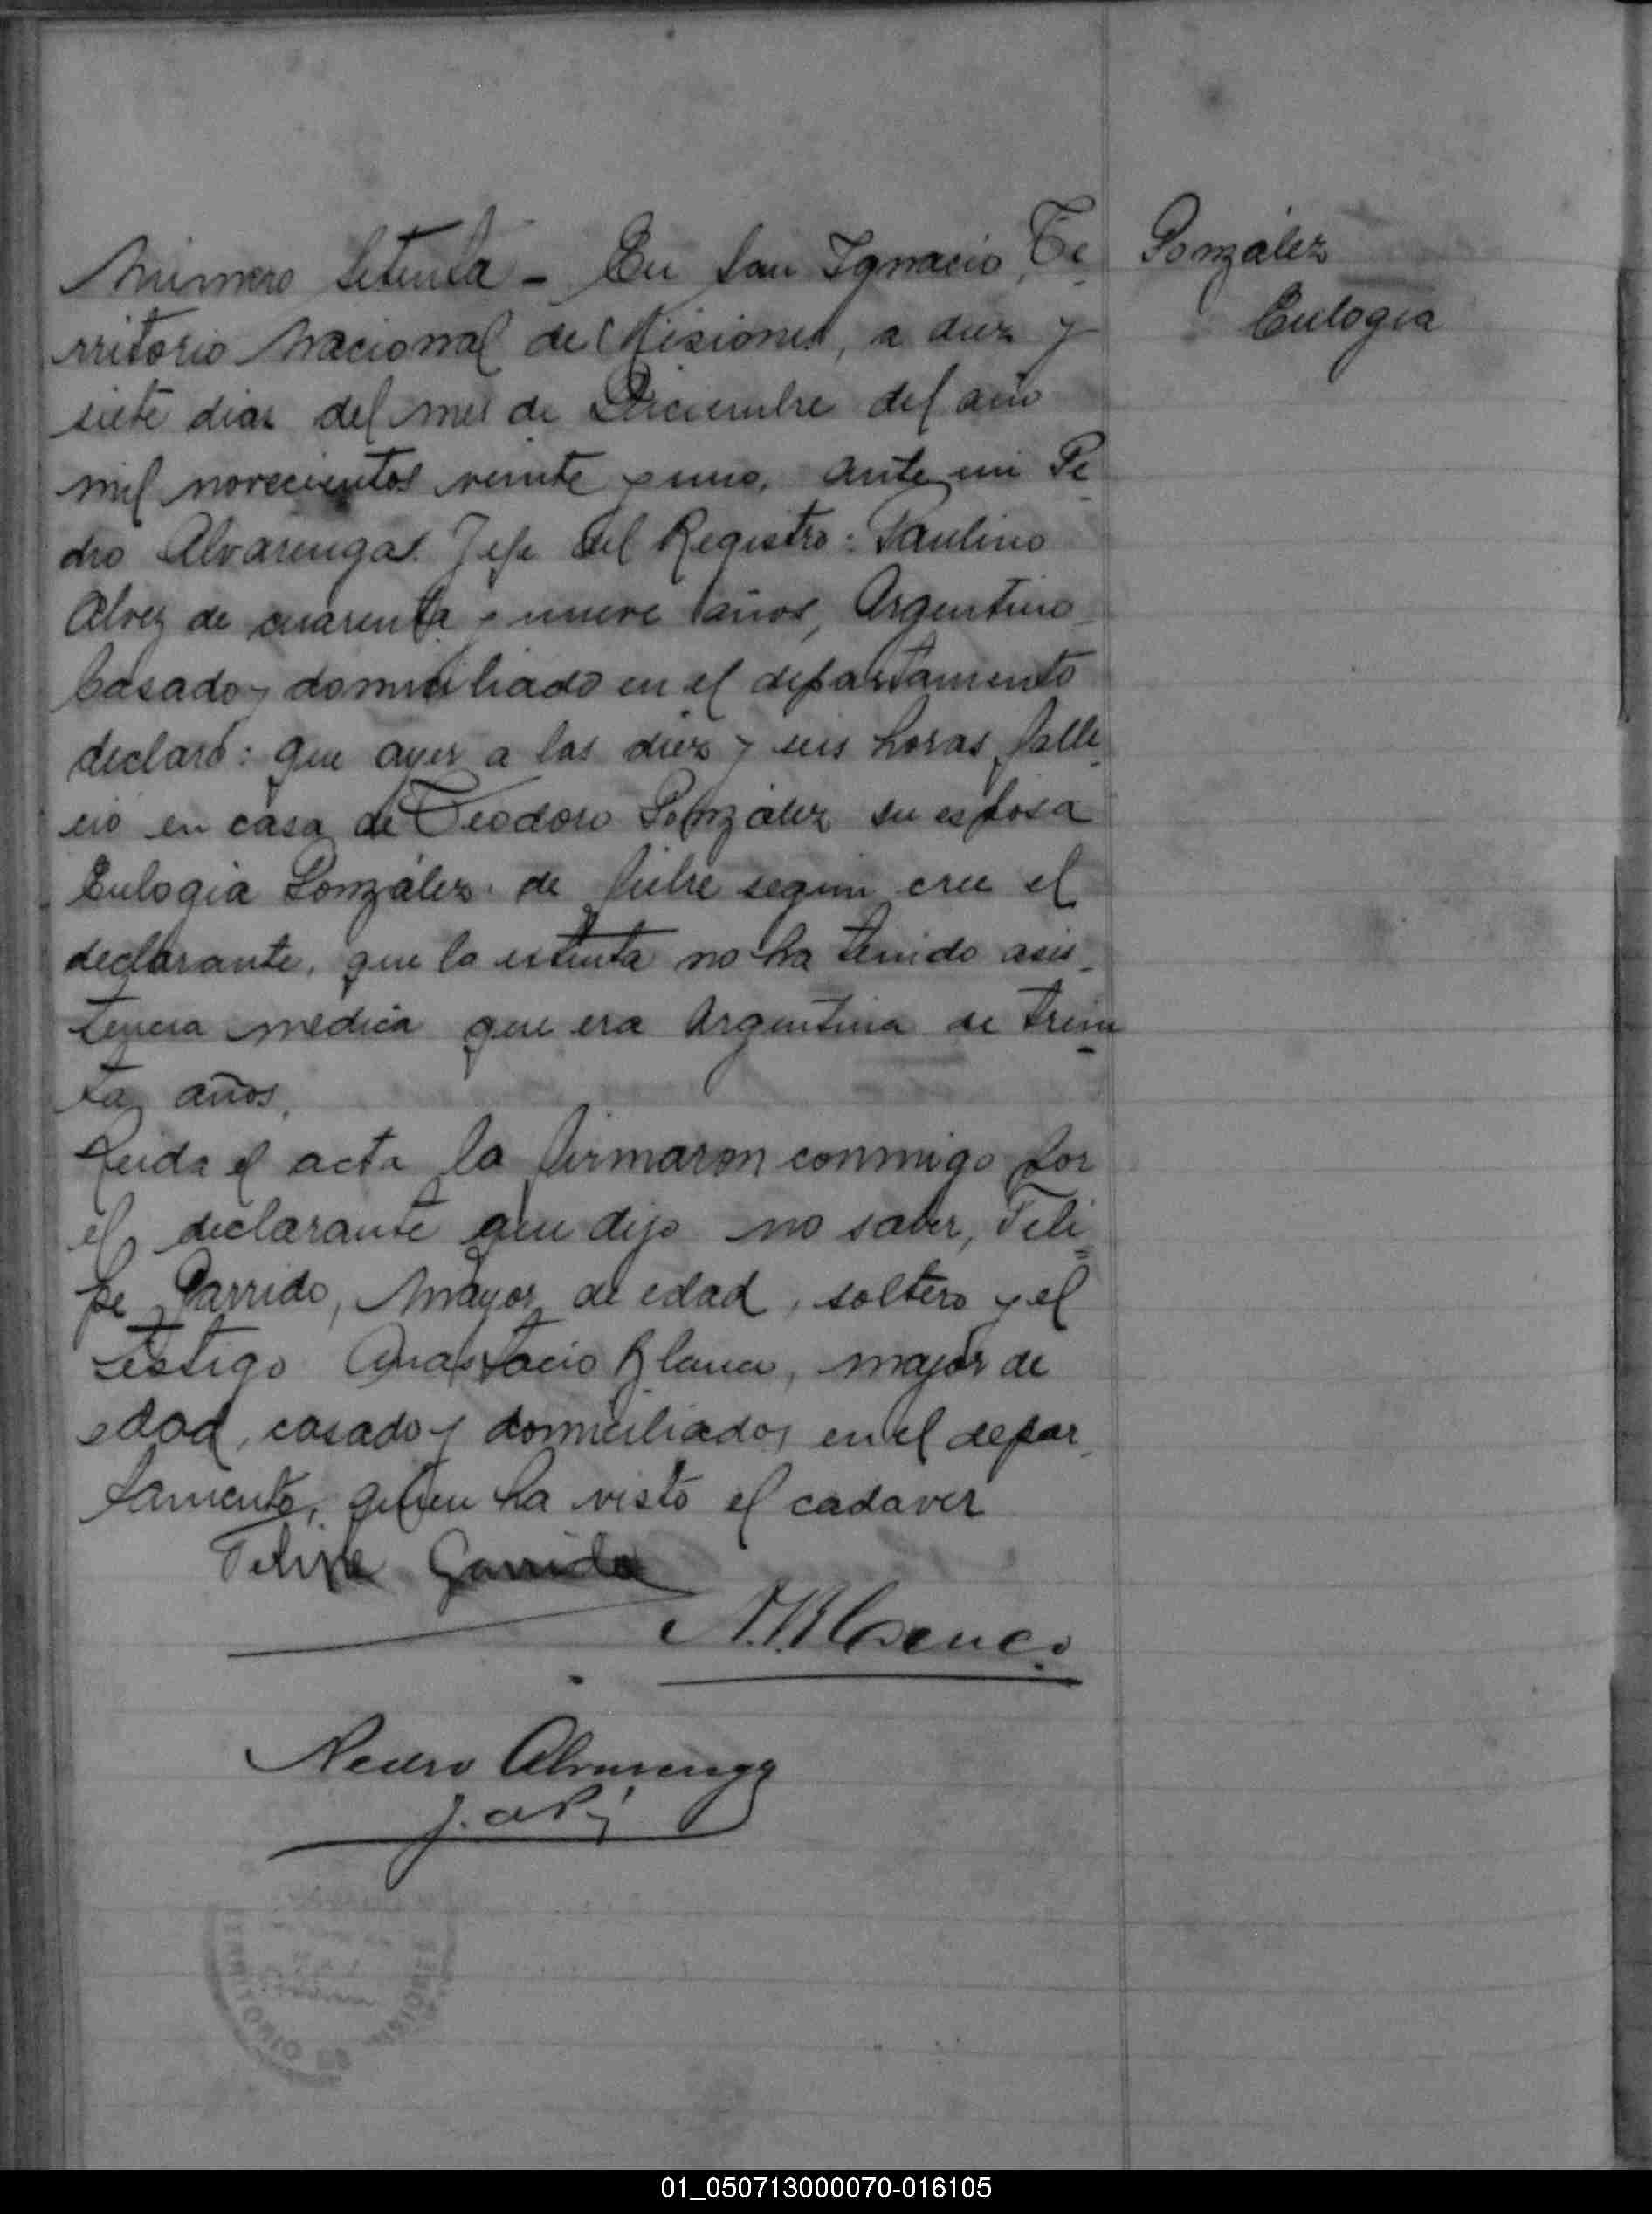 Número Setenta - En San Ignacio, Te-
rritorio Nacional de Misiones, a diez y
siete dias del mes de Diciembre del año
mil novecientos veinte y uno, ante mi Pe-
dro Alvarenga. Jefe del Registro: Paulino
Alvez de cuarenta y nueve años, Argentino
Casado y domiciliado en el departamento
declaró: que ayer a las diez y seis horas falle-
ció en casa de Teodoro González su esposa
Eulogia González de fiebre segun cree el
declarante, que la extinta no ha tenido asis-
tencia medica que era Argentina de trein-
ta años.
Leida el acta la firmaron conmigo por
el declarante que dijo no saber, Feli-
pe Garrido, Mayor de edad, soltero y el
testigo Anastacio Blanco, mayor de
edad, casado y domiciliados en el depar-
tamento, quien ha visto el cadaver
Felipe Garrido
A. Blanco
Pedro Alvarenga
González
Eulogia
TERRITORIO DE MISIONES
01_050713000070-016105